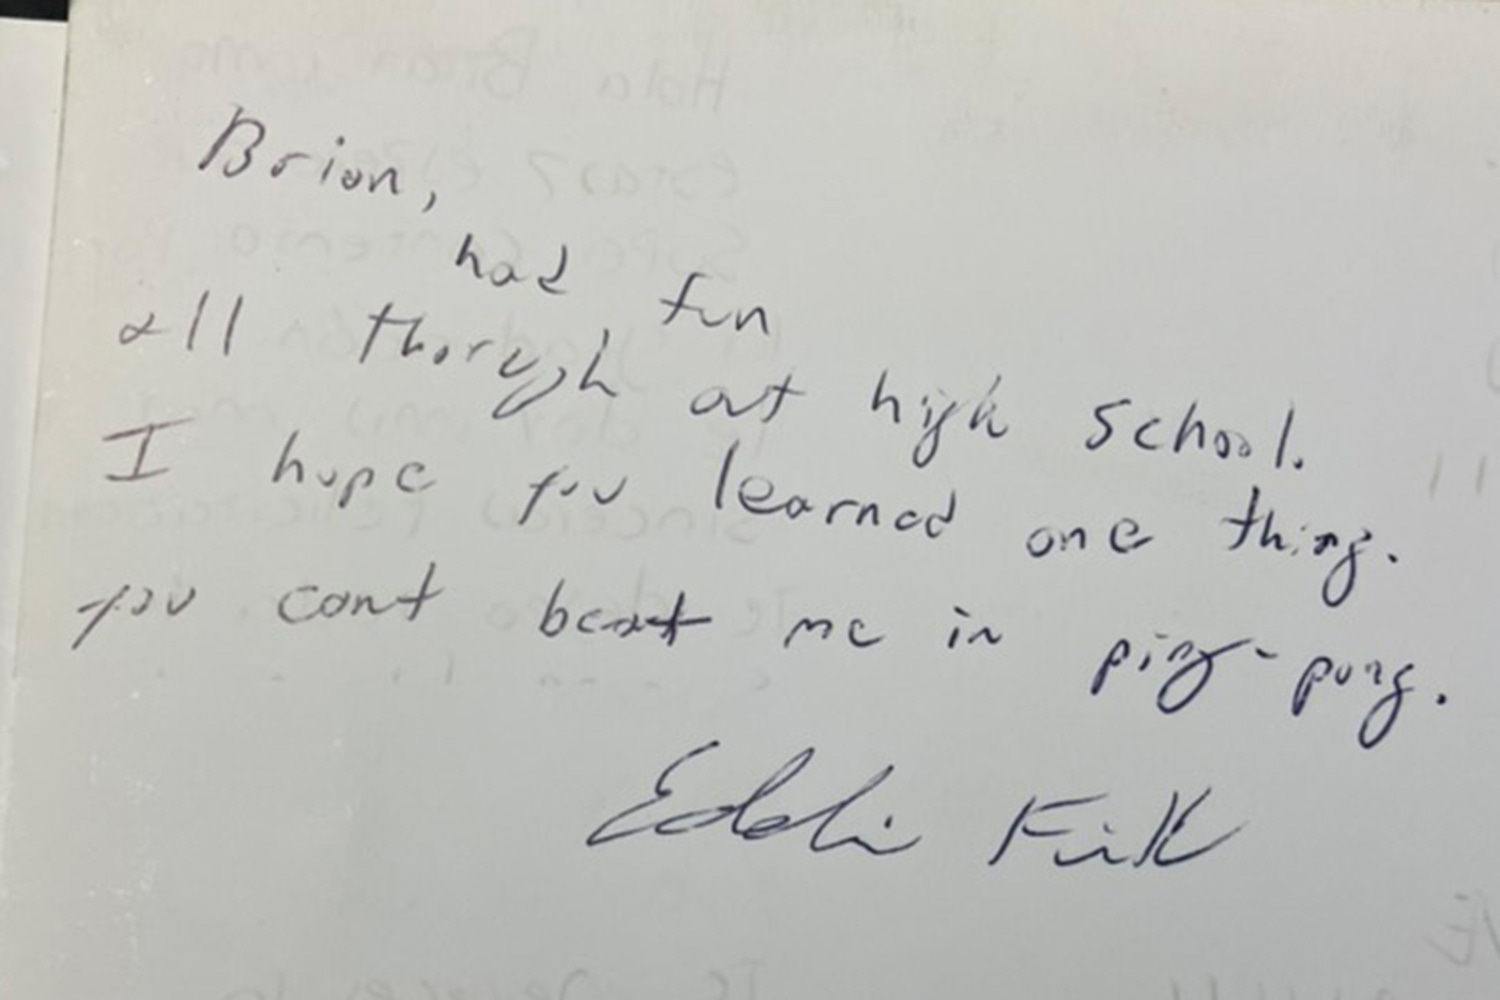 Brian,
had fun
all thorugh at high school.
I hope you learned one thing.
you cant beat me in ping-pong.
Eddie